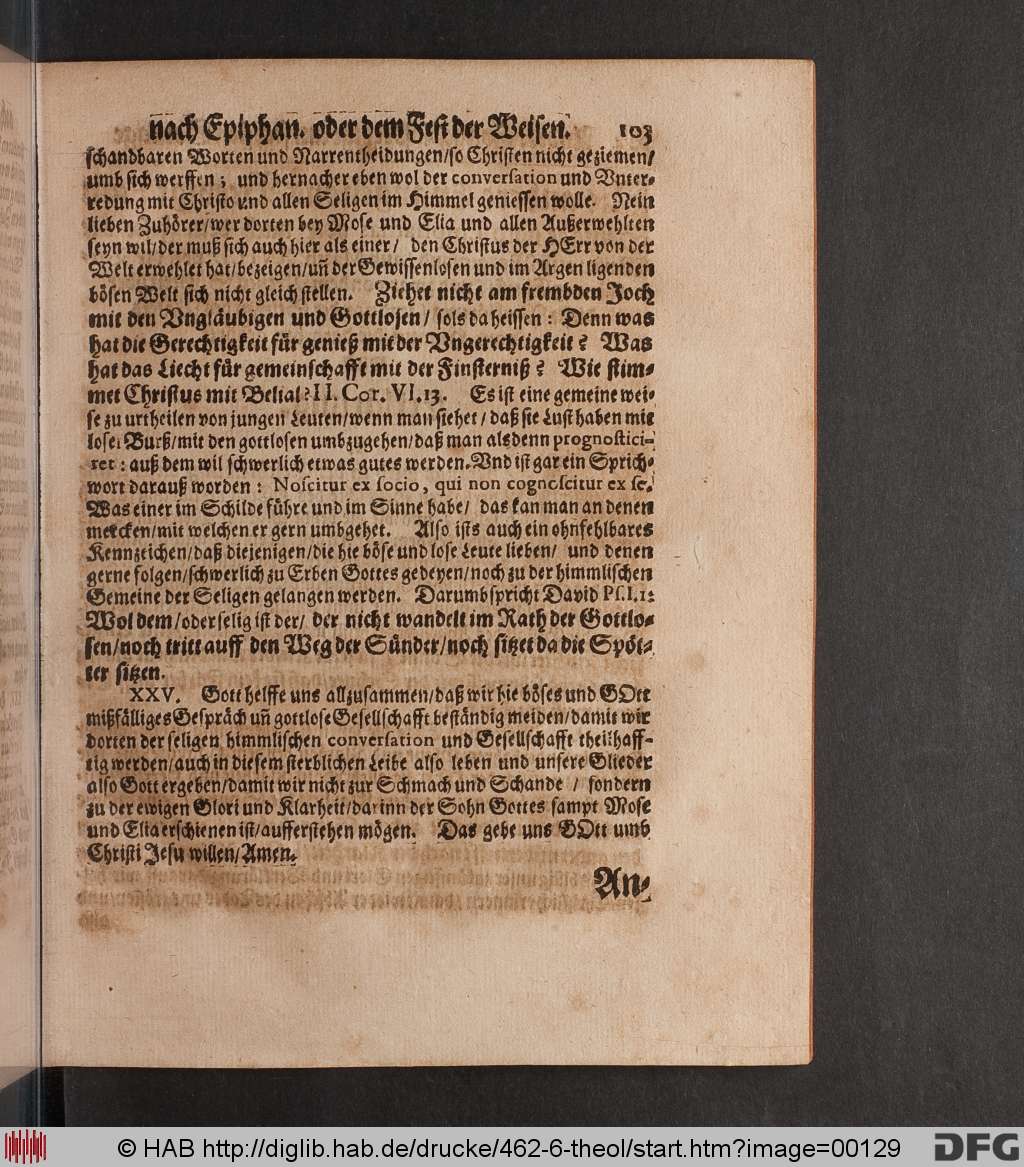 nach Epiphan. oder dem Fest der Weisen. 103
schandbaren Worten und Narrentheidungen/so Christen nicht geziemen/
umb sich werffen; und hernacher eben wol der conversation und Vnter-
redung mit Christo und allen Seligen im Himmel geniessen wolle. Nein
lieben Zuhörer/wer dorten bey Mose und Elia und allen Außerwehlten
seyn wil/der muß sich auch hier als einer/ den Christus der HErr von der
Welt erwehlet hat/bezeigen/uñ der Gewissenlosen und im Argen ligenden
bösen Welt sich nicht gleich stellen. Ziehet nicht am frembden Joch
mit den Vngläubigen und Gottlosen/ sols da heissen: Denn was
hat die Gerechtigkeit für genieß mit der Vngerechtigkeit? Was
hat das Liecht für gemeinschafft mit der Finsterniß? Wie stim-
met Christus mit Belial? II. Cor. VI. 13. Es ist eine gemeine wei-
se zu urtheilen von jungen Leuten/wenn man siehet/daß sie Lust haben mit
loser Burß/mit den gottlosen umbzugehen/daß man alsdenn prognostici-
ret: auß dem wil schwerlich etwas gutes werden. Vnd ist gar ein Sprich-
wort darauß worden: Noscitur ex socio, qui non cognoscitur ex se.
Was einer im Schilde führe und im Sinne habe/ das kan man an denen
mercken/mit welchen er gern umbgehet. Also ists auch ein ohnfehlbares
Kennzeichen/daß diejenigen/die hie böse und lose Leute lieben/ und denen
gerne folgen/schwerlich zu Erben Gottes gedeyen/noch zu der himmlischen
Gemeine der Seligen gelangen werden. Darumb spricht David Ps. I. 1:
Wol dem/oder selig ist der/ der nicht wandelt im Rath der Gottlo-
sen/noch tritt auff den Weg der Sünder/noch sitzet da die Spöt-
ter sitzen.
XXV. Gott helffe uns allzusammen/daß wir hie böses und GOtt
mißfälliges Gespräch uñ gottlose Gesellschafft beständig meiden/damit wir
dorten der seligen himmlischen conversation und Gesellschafft theilhaff-
tig werden/auch in diesem sterblichen Leibe also leben und unsere Glieder
also Gott ergeben/damit wir nicht zur Schmach und Schande / sondern
zu der ewigen Glori und Klarheit/darinn der Sohn Gottes sampt Mose
und Elia erschienen ist/aufferstehen mögen. Das gebe uns GOtt umb
Christi Jesu willen/Amen.
An-
© HAB http://diglib.hab.de/drucke/462-6-theol/start.htm?image=00129
DFG